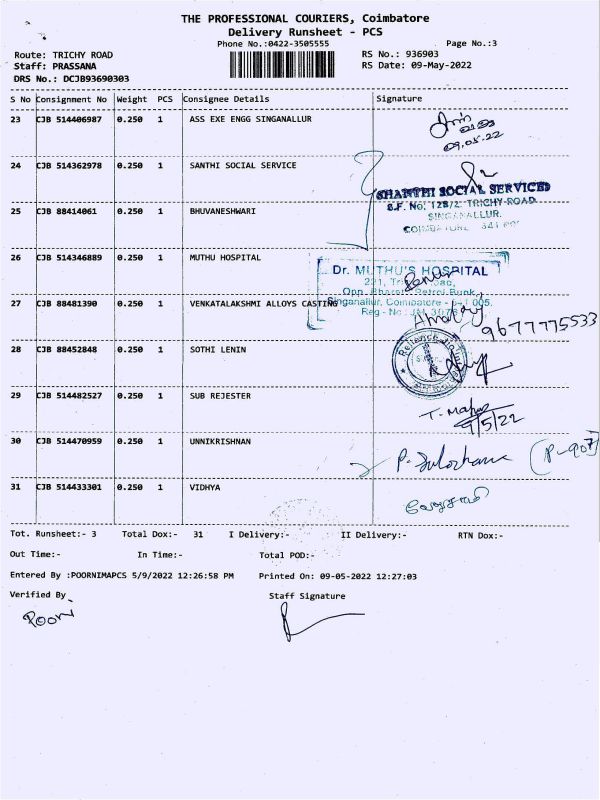 THE PROFESSIONAL COURIERS, Coimbatore
Delivery Runsheet - PCS
Phone No.:0422-3505555 Page No.:3
Route: TRICHY ROAD RS No.: 936903
Staff: PRASSANA RS Date: 09-May-2022
DRS No.: DCJB93690303
S No Consignment No Weight PCS Consignee Details Signature
23 CJB 514406987 0.250 1 ASS EXE ENGG SINGANALLUR
09.05.22
24 CJB 514362978 0.250 1 SANTHI SOCIAL SERVICE
SHANTHI SOCIAL SERVICES
S.F. No: 128/2 TRICHY ROAD
SINGANALLUR.
25 CJB 88414061 0.250 1 BHUVANESHWARI
COIMBATORE
26 CJB 514346889 0.250 1 MUTHU HOSPITAL
Dr. MUTHU'S HOSPITAL
221,
Opp. Bharat Petrol Bunk,
27 CJB 88481390 0.250 1 VENKATALAKSHMI ALLOYS CASTING
Singanallur, Coimbatore - 005.
Reg - No
9677775533
28 CJB 88452848 0.250 1 SOTHI LENIN
29 CJB 514482527 0.250 1 SUB REJESTER
9/5/22
30 CJB 514470959 0.250 1 UNNIKRISHNAN
(P-907)
31 CJB 514433301 0.250 1 VIDHYA
Tot. Runsheet:- 3 Total Dox:- 31 I Delivery:- II Delivery:- RTN Dox:-
Out Time:- In Time:- Total POD:-
Entered By :POORNIMAPCS 5/9/2022 12:26:58 PM Printed On: 09-05-2022 12:27:03
Verified By Staff Signature
Poorni